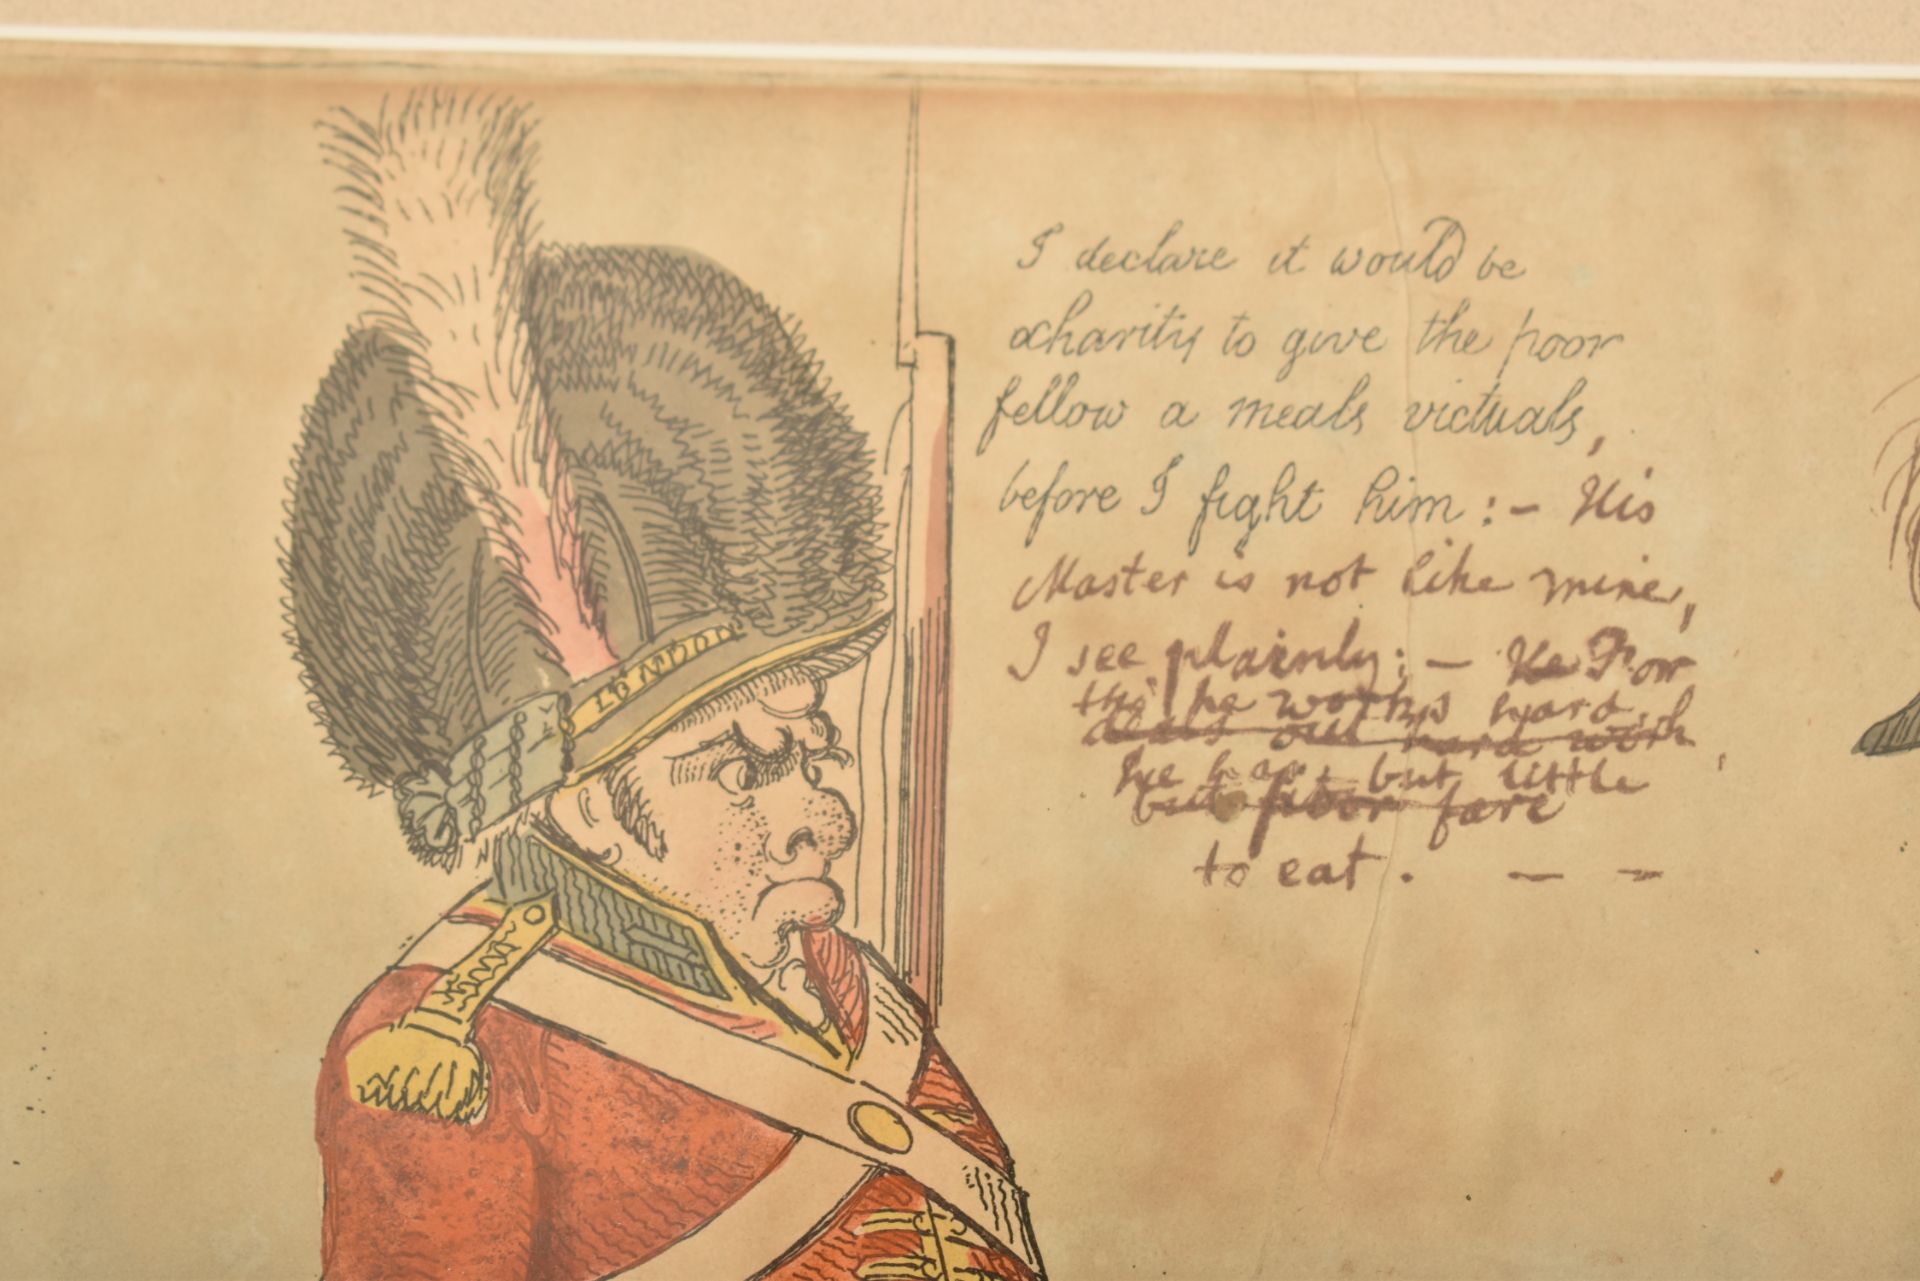 I declare it would be
charity to give the poor
fellow a meals victuals,
before I fight him :— His
Master is not like mine,
I see plainly; — He For
tho' he works hard
deals out hard work
he has but little
but poor fare
to eat . — —
LONDON